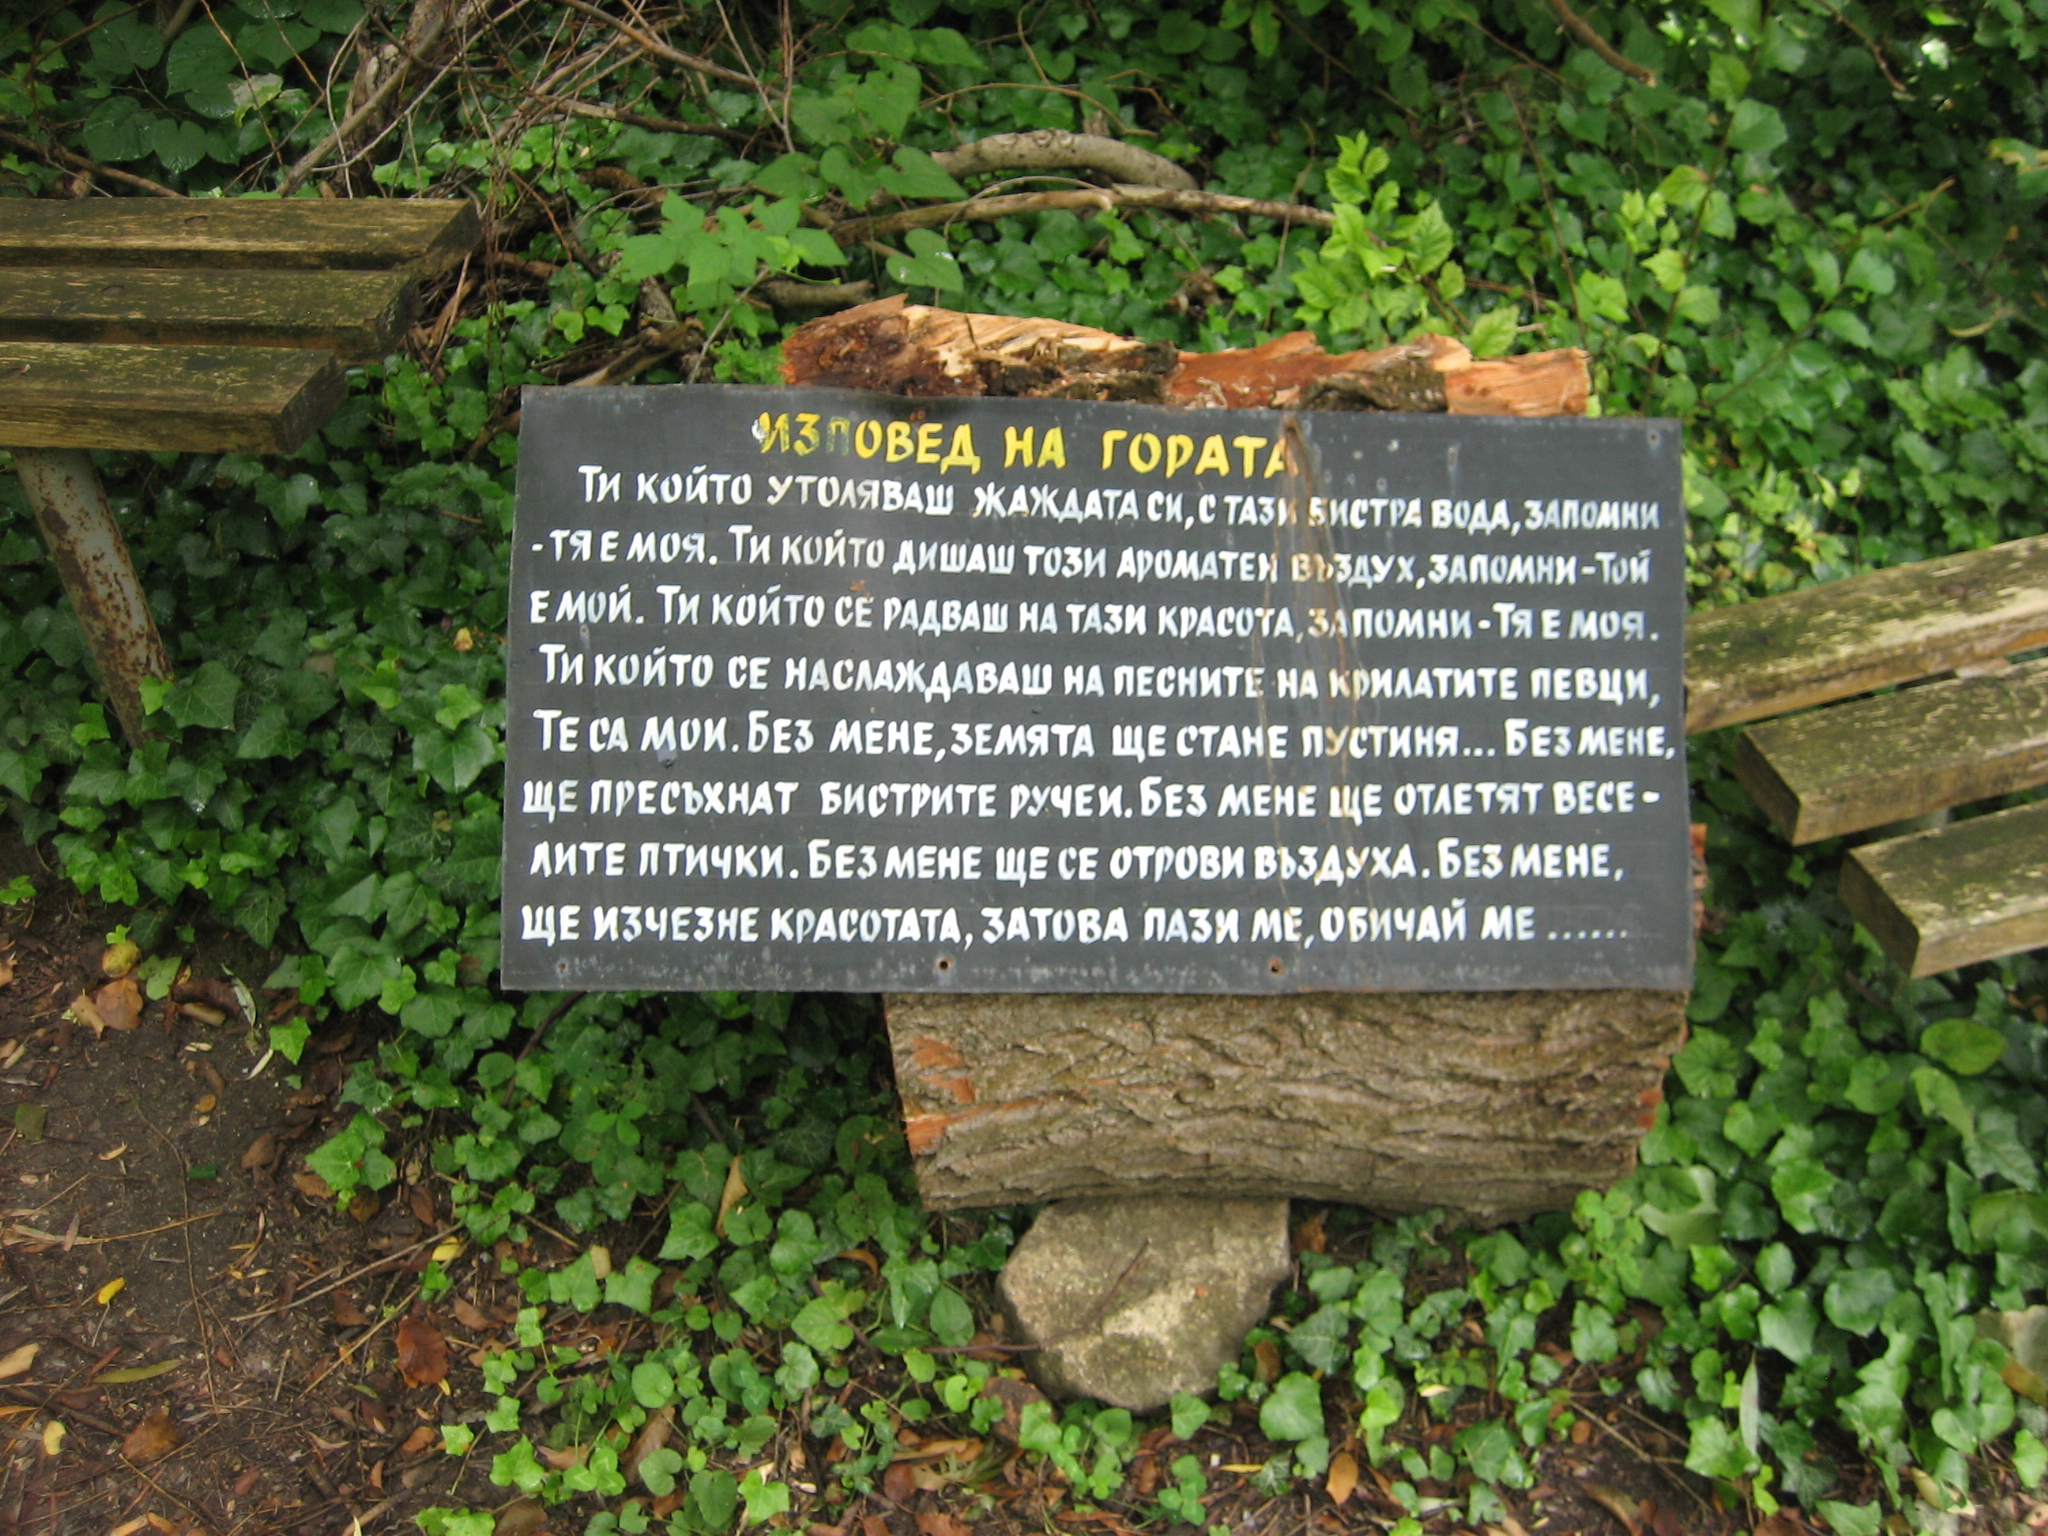 ИЗПОВЕД НА ГОРАТА
Ти който утоляваш жаждата си, с тази бистра вода, запомни
- тя е моя. Ти който дишаш този ароматен въздух, запомни - Той
е мой. Ти който се радваш на тази красота, запомни - Тя е моя.
Ти който се наслаждаваш на песните на крилатите певци,
Те са мои. Без мене, земята ще стане пустиня... Без мене,
ще пресъхнат бистрите ручеи. Без мене ще отлетят весе-
лите птички. Без мене ще се отрови въздуха. Без мене,
ще изчезне красотата, затова пази ме, обичай ме ......